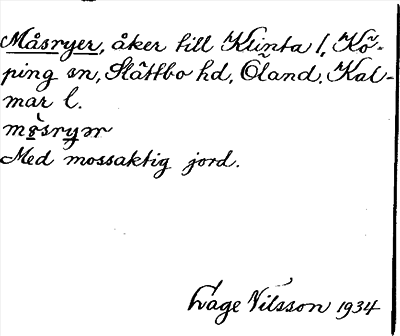 Måsryer, åker till Klinta 1, Kö-
ping sn, Slättbo hd, Öland, Kal-
mar l.
mò̤sryər
Med mossaktig jord.
Lage Nilsson 1934